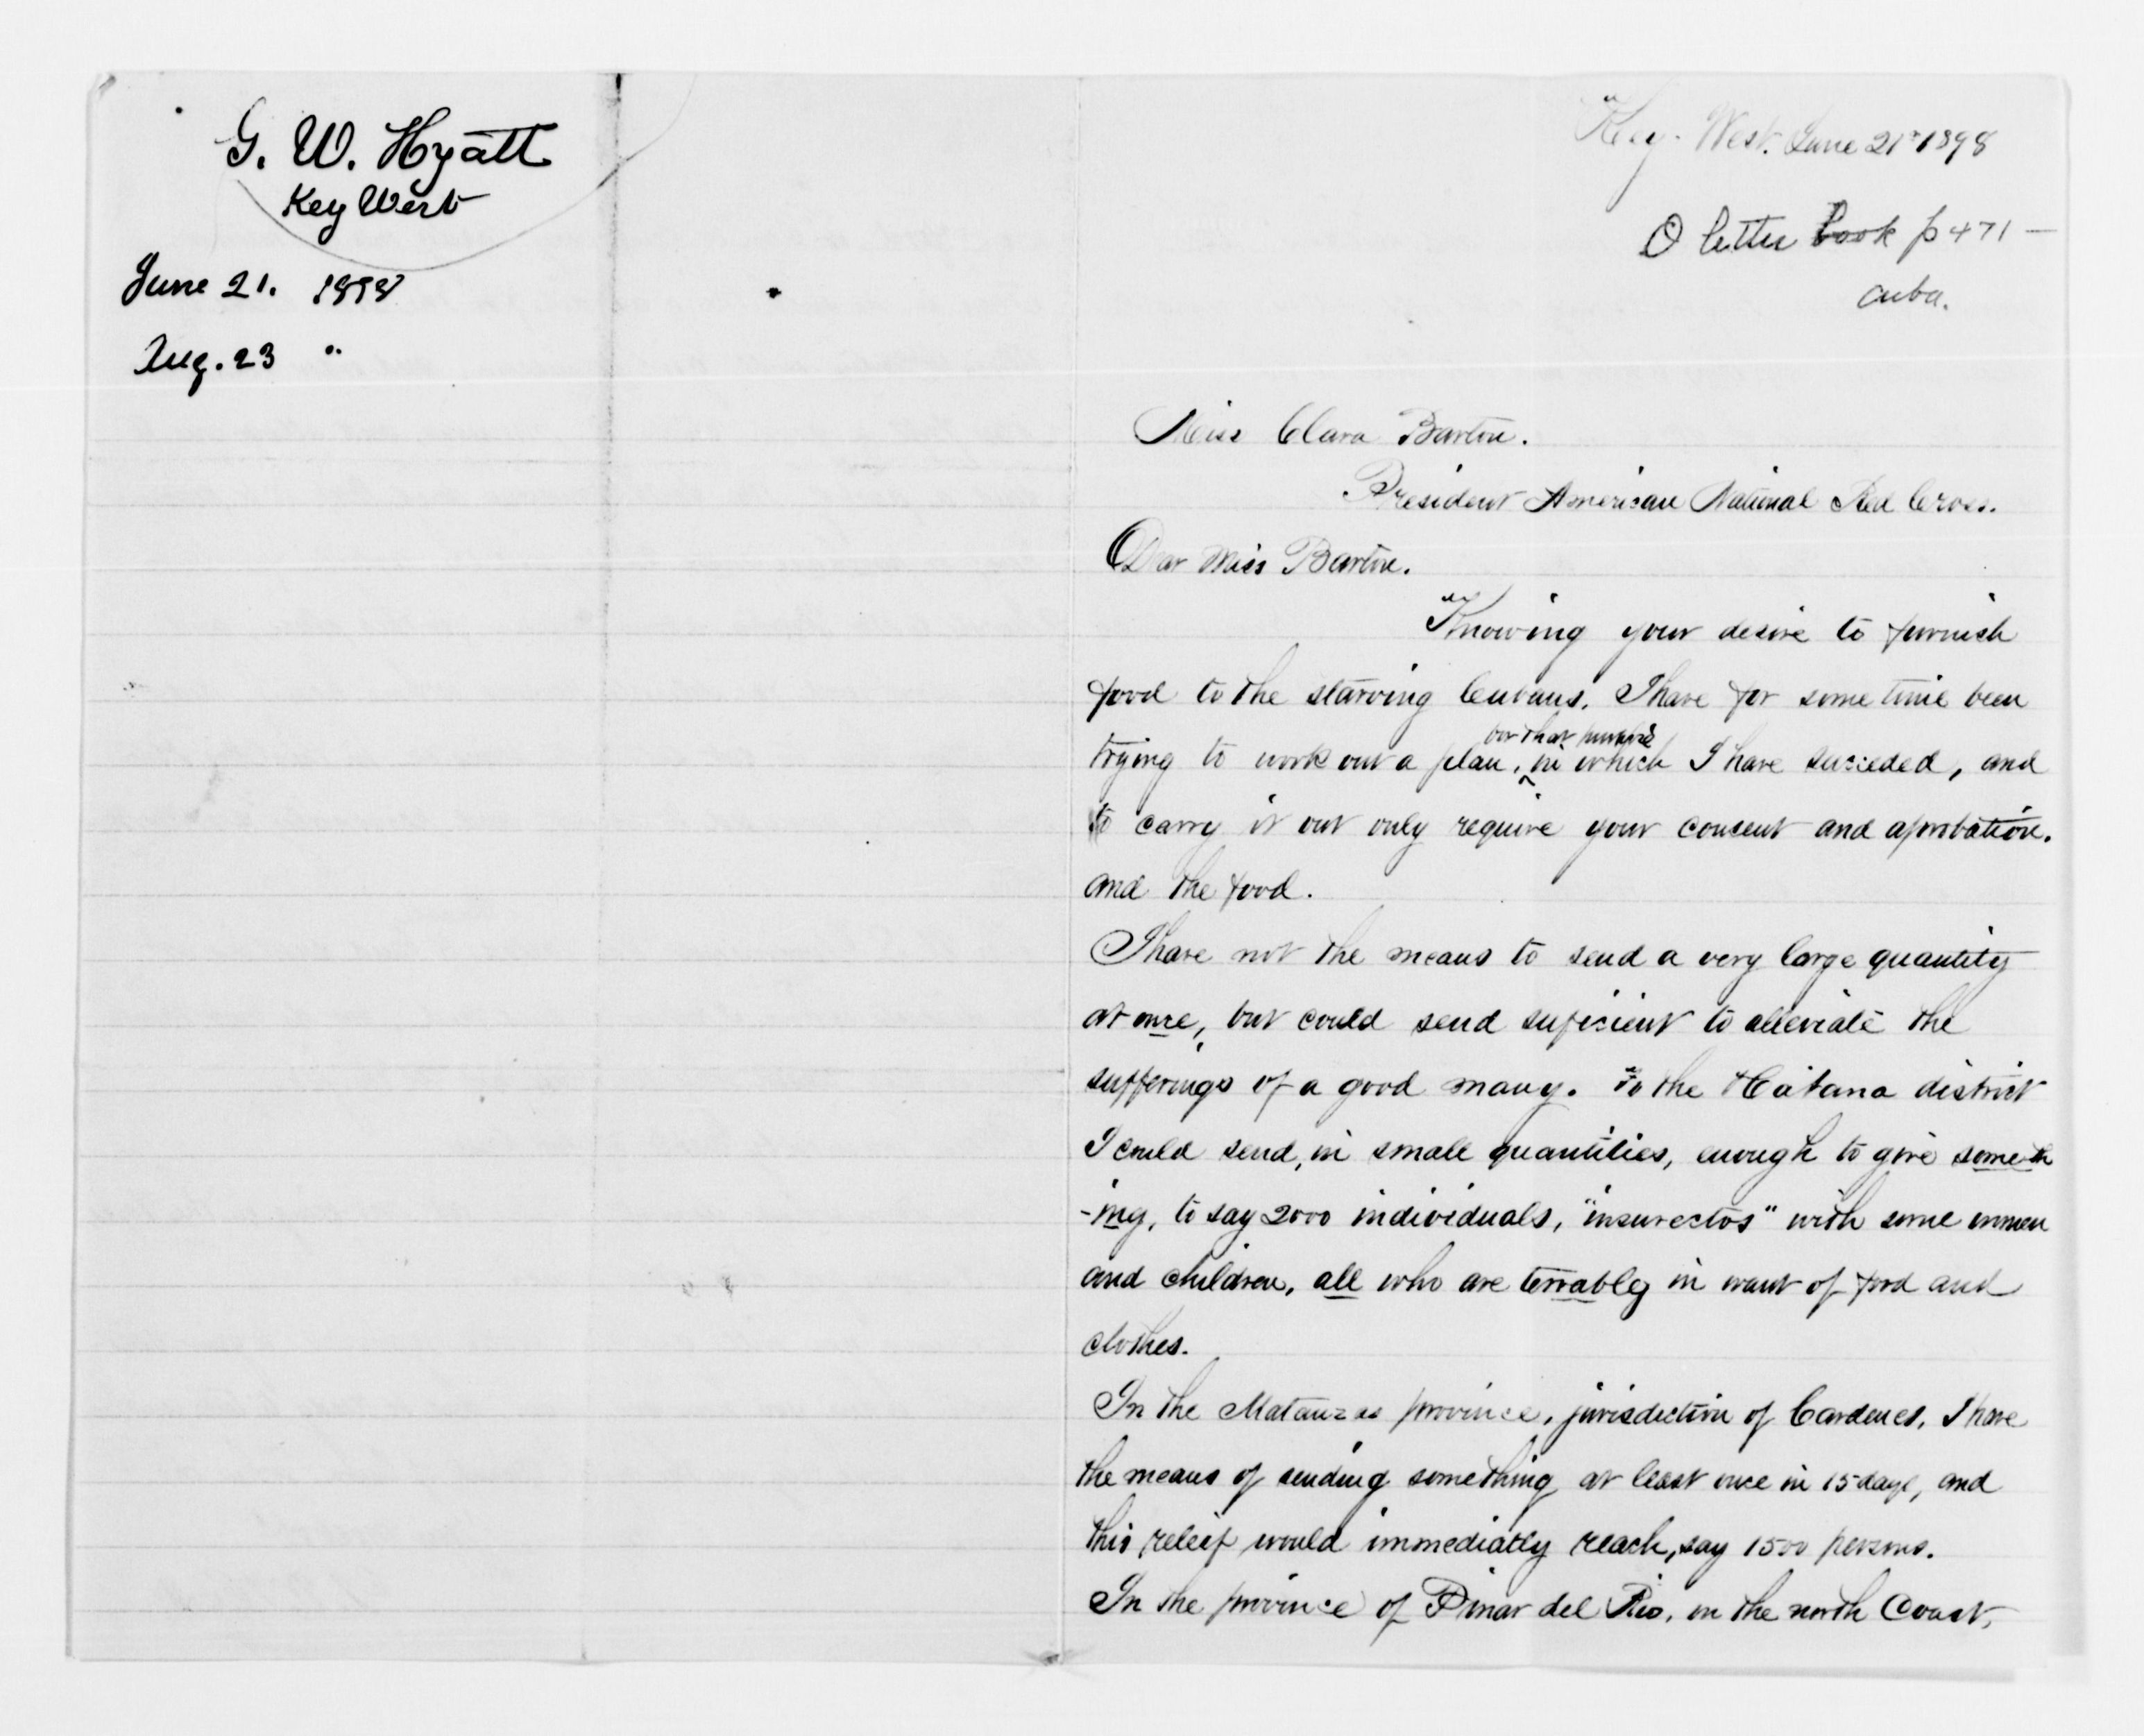 G. W. Hyatt
Key West
June 21. 1898
Aug. 23 "
Key-West. June 21st 1898
O letter book p 471 —
Cuba.
Miss Clara Barton.
President American National Red Cross.
Dear Miss Barton.
Knowing your desire to furnish
food to the starving Cubans. I have for some time been
for that purpose
trying to work out a plan, in which I have succeded, and
to carry it out only require your consent and aprobation.
and the food.
I have not the means to send a very large quantity
at once, but could send suficient to alleviate the
sufferings of a good many. To the Habana district
I could send, in small quantities, enough to give someth
-ing, to say 2000 individuals, "insurectos" with some women
and children, all who are terrably in want of food and
clothes.
In the Matanzas province, jurisdiction of Cardenes, I have
the means of sending something at least once in 15 days, and
this releif would immediatly reach, say 1500 persons.
In the province of Pinar del Rio, on the north Coast,